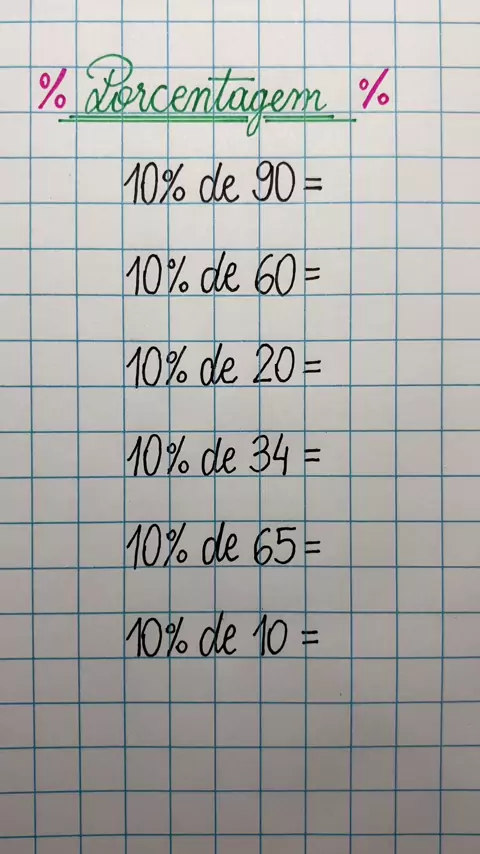 % Porcentagem %
10% de 90 =
10% de 60 =
10% de 20 =
10% de 34 =
10% de 65 =
10% de 10 =